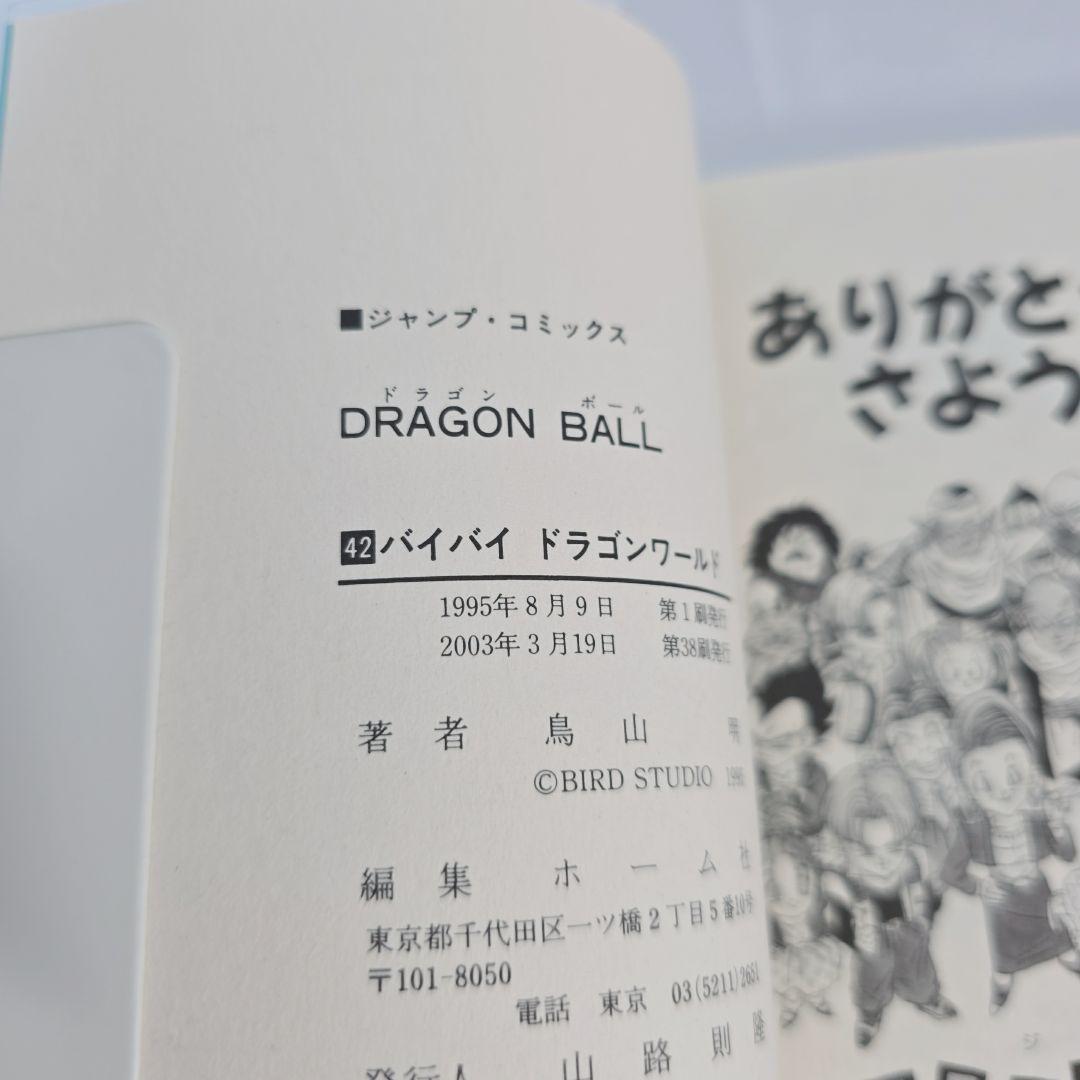 ■ジャンプ・コミックス
ドラゴン ボール
DRAGON BALL
42バイバイ ドラゴンワールド
1995年8月9日 第1刷発行
2003年3月19日 第38刷発行
著者 鳥山 明
©BIRD STUDIO
編集 ホーム社
東京都千代田区一ツ橋2丁目5番10号
〒101-8050
電話 東京 03(5211)2651
発行人 山路則隆
ありがと
さよう
ジ